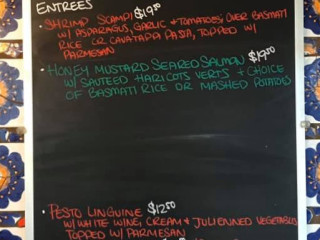 ENTREES
• SHRIMP SCAMPI $19.00
W/ ASPARAGUS, GARLIC + TOMATOES; OVER BASMATI
RICE OR CAVATAPPI PASTA, TOPPED W/
PARMESAN
• HONEY MUSTARD SEARED SALMON $19.00
W/ SAUTEED HARICOTS VERTS + CHOICE
OF BASMATI RICE OR MASHED POTATOES
• PESTO LINGUINE $12.00
W/ WHITE WINE, CREAM + JULIENNED VEGETABLES
TOPPED W/ PARMESAN